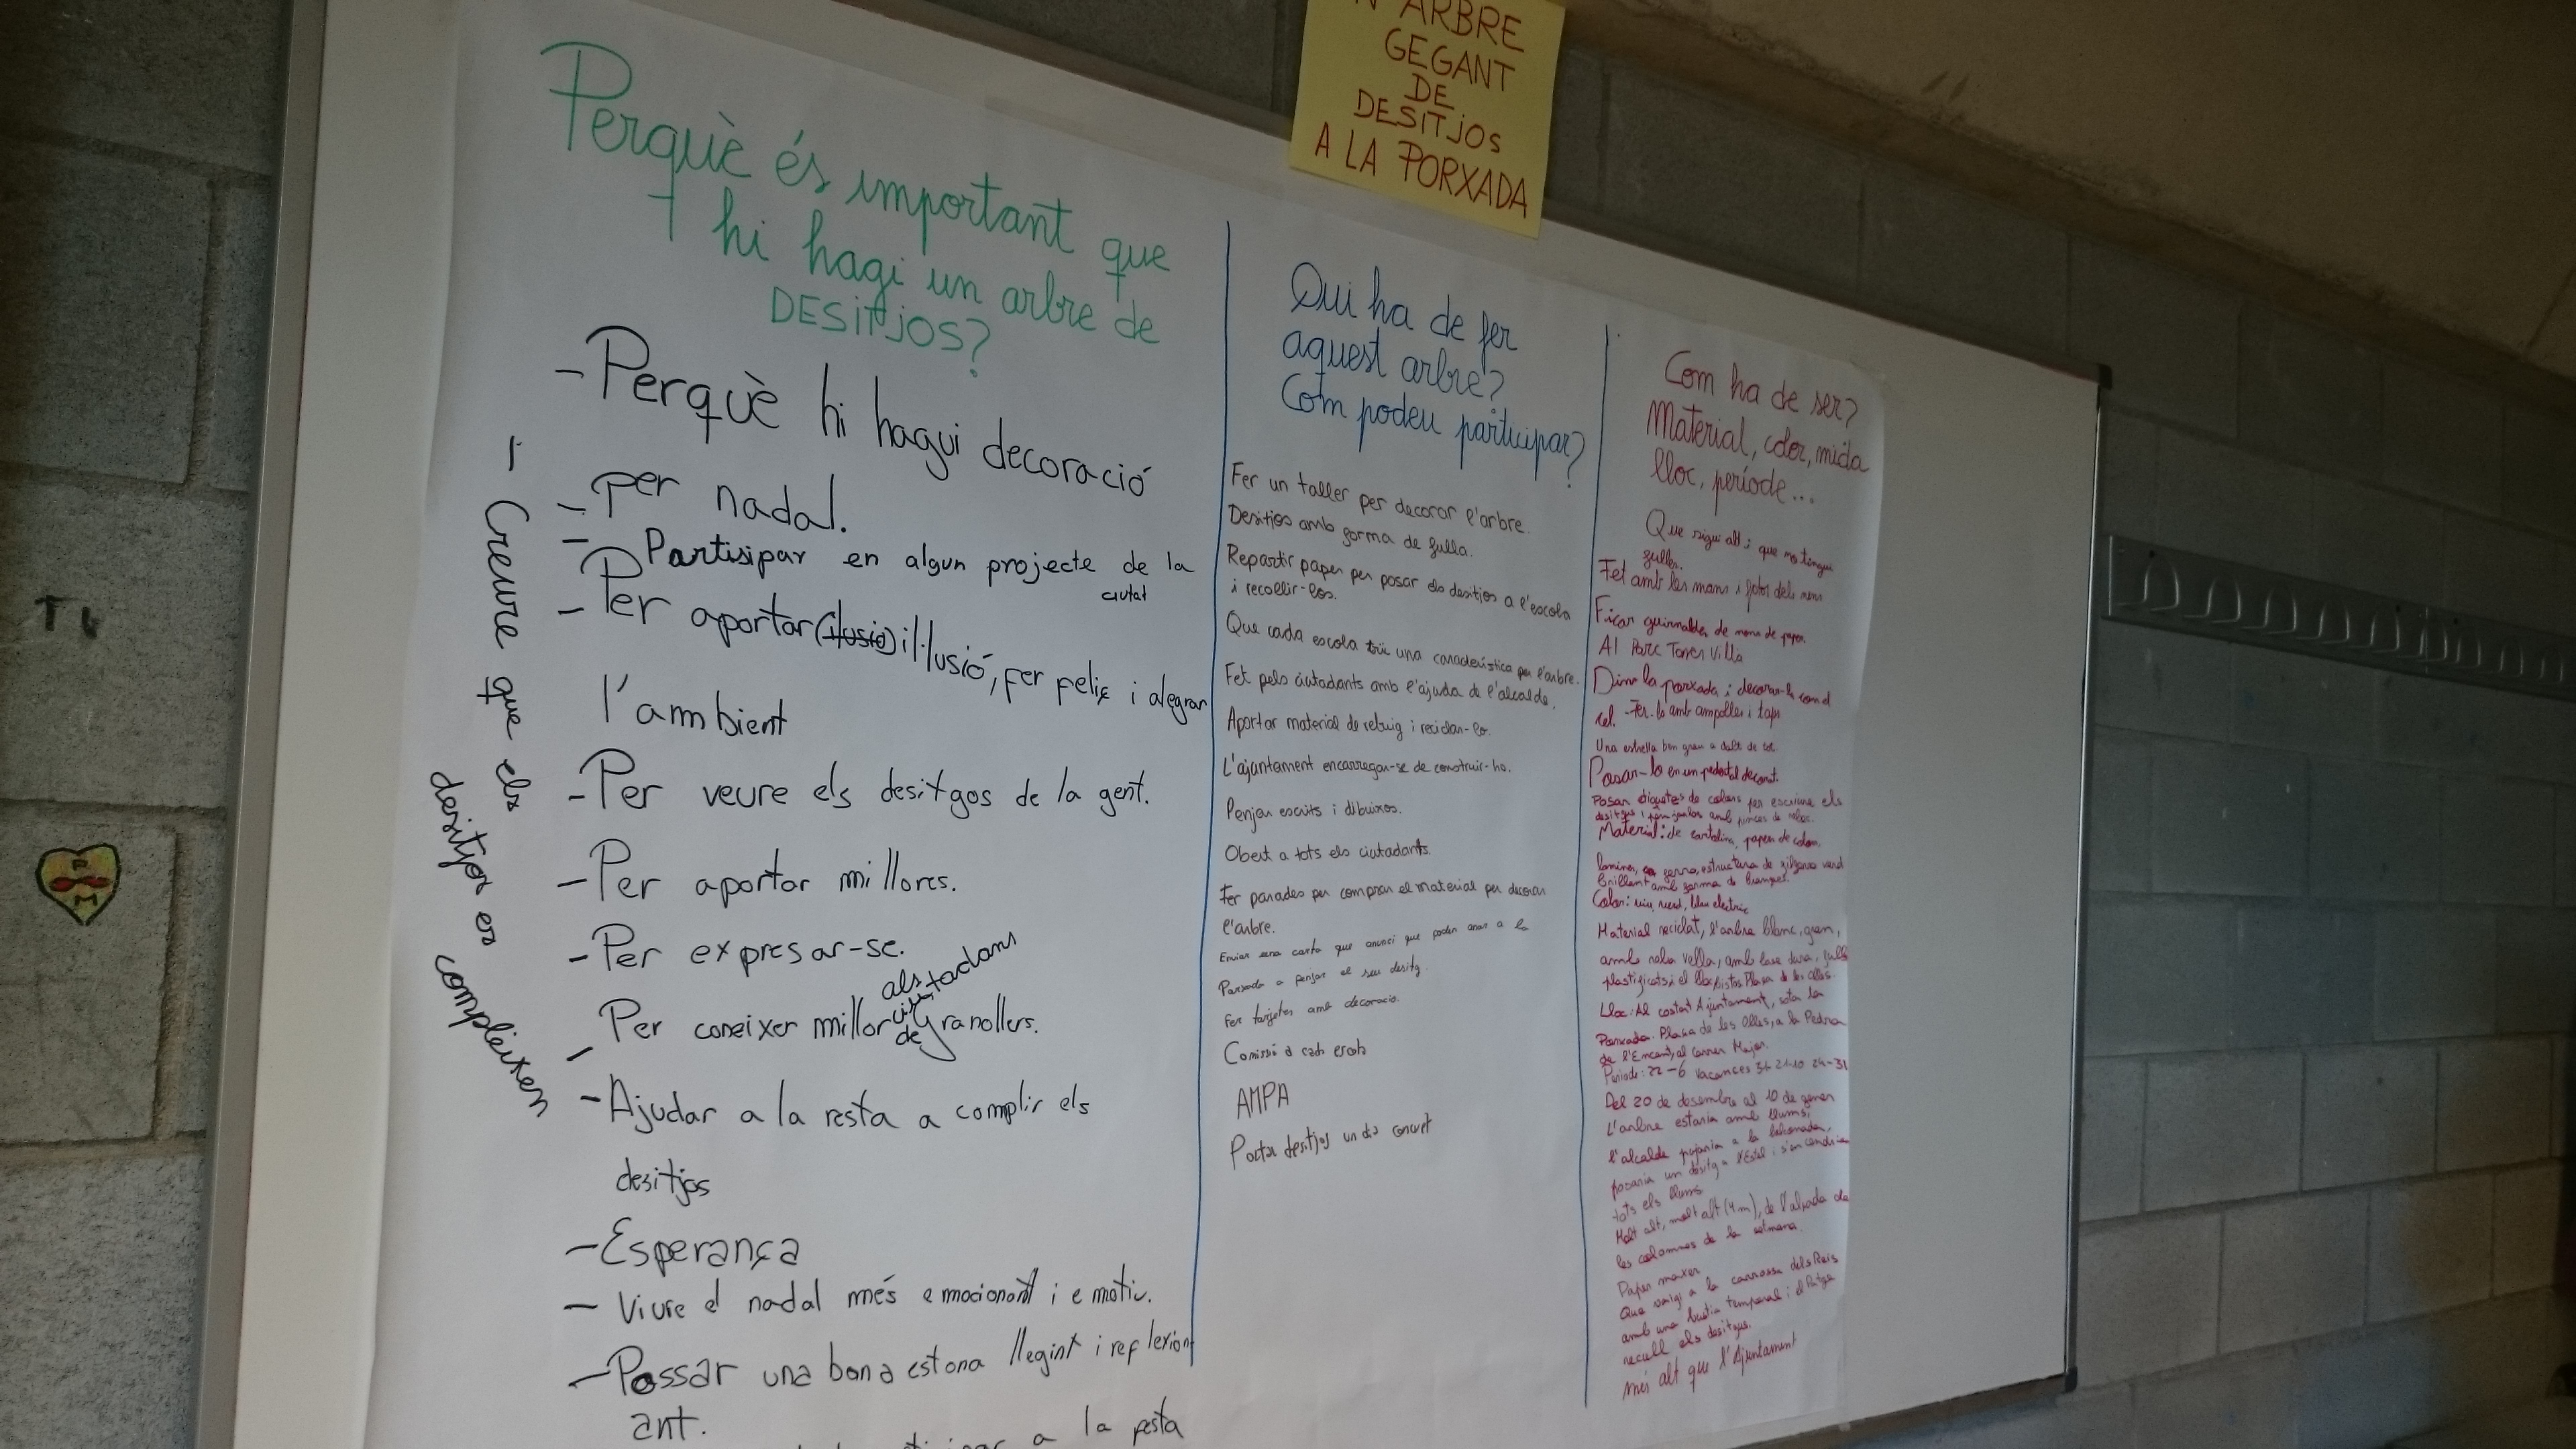 ARBRE
GEGANT
DE
DESITJOS
A LA PORXADA
Perquè és important que
hi hagi un arbre de
DESITJOS?
- Perquè hi hagui decoració
- per nadal.
- Partisipar en algun projecte de la
ciutat
- Per aportar (ilusió) il·lusió, fer feliç i alegrar
l'ambient
- Per veure els desitgos de la gent.
- Per aportar millores.
- Per expresar-se.
Per coneixer millor als ciutadans de Granollers.
- Ajudar a la resta a complir els
desitjos
- Esperança
- Viure el nadal més emocionant i emotiu.
- Passar una bona estona llegint i reflexion
ant.
a la festa
- Creure que els
desitjos es
compleixen
Qui ha de fer
aquest arbre?
Com podeu participar?
Fer un taller per decorar l'arbre.
Desitjos amb forma de fulla.
Repartir paper per posar els desitjos a l'escola
i recollir-los.
Que cada escola triï una característica per l'arbre.
Fet pels ciutadants amb l'ajuda de l'alcalde.
Aportar material de rebuig i reciclar-lo.
L'ajuntament encarregar-se de construir-ho.
Penjar escrits i dibuixos.
Obert a tots els ciutadants.
Fer parades per comprar el material per decorar
l'arbre.
Enviar una carta que anunci que poden anar a la
Porxada a penjar el seu desitg.
Fer targetes amb decoracio.
Comissió a cada escola
AMPA
Portar desitjos un dia concret
Com ha de ser?
Material, color, mida
lloc, període...
Que sigui alt i que no tingui
fulles.
Fet amb les mans i fotos dels nens
Ficar guirnaldes de nens de paper
Al Parc Torres Villà
Dins la porxada i decorar-la com el
cel. - Fer-lo amb ampolles i taps
Una estrella ben gran a dalt de tot.
Posar-lo en un pedestal decorat.
Posar etiquetes de colors per escriure els
desitgus i amb pinces de
Material: de cartolina, paper de colors.
ferro, estructura de filferro verd
brillant amb forma de branques.
Color: viu, verd, blau electric
Material reciclat, l'arbre blanc, gran,
amb roba vella, amb base dura,
plastificats i el lloc Plaça de les Olles.
Lloc: Al costat Ajuntament, sota la
Porxada. Plaça de les Olles, a la Pedra
de l'Encant, al carrer Major.
Període: 22-6 vacances 24-31
Del 20 de desembre al 10 de gener
L'arbre estaria amb llums,
l'alcalde pujaria a la balconada,
posaria un desitg a l'Estel i s'encendrien
tots els llums
Molt alt, molt alt (4m), de l'alçada de
les columnes de la
Paper maxer
Que vaigi a la carrossa dels Reis
amb una bustia temporal i el Patge
recull els desitgus.
més alt que l'Ajuntament